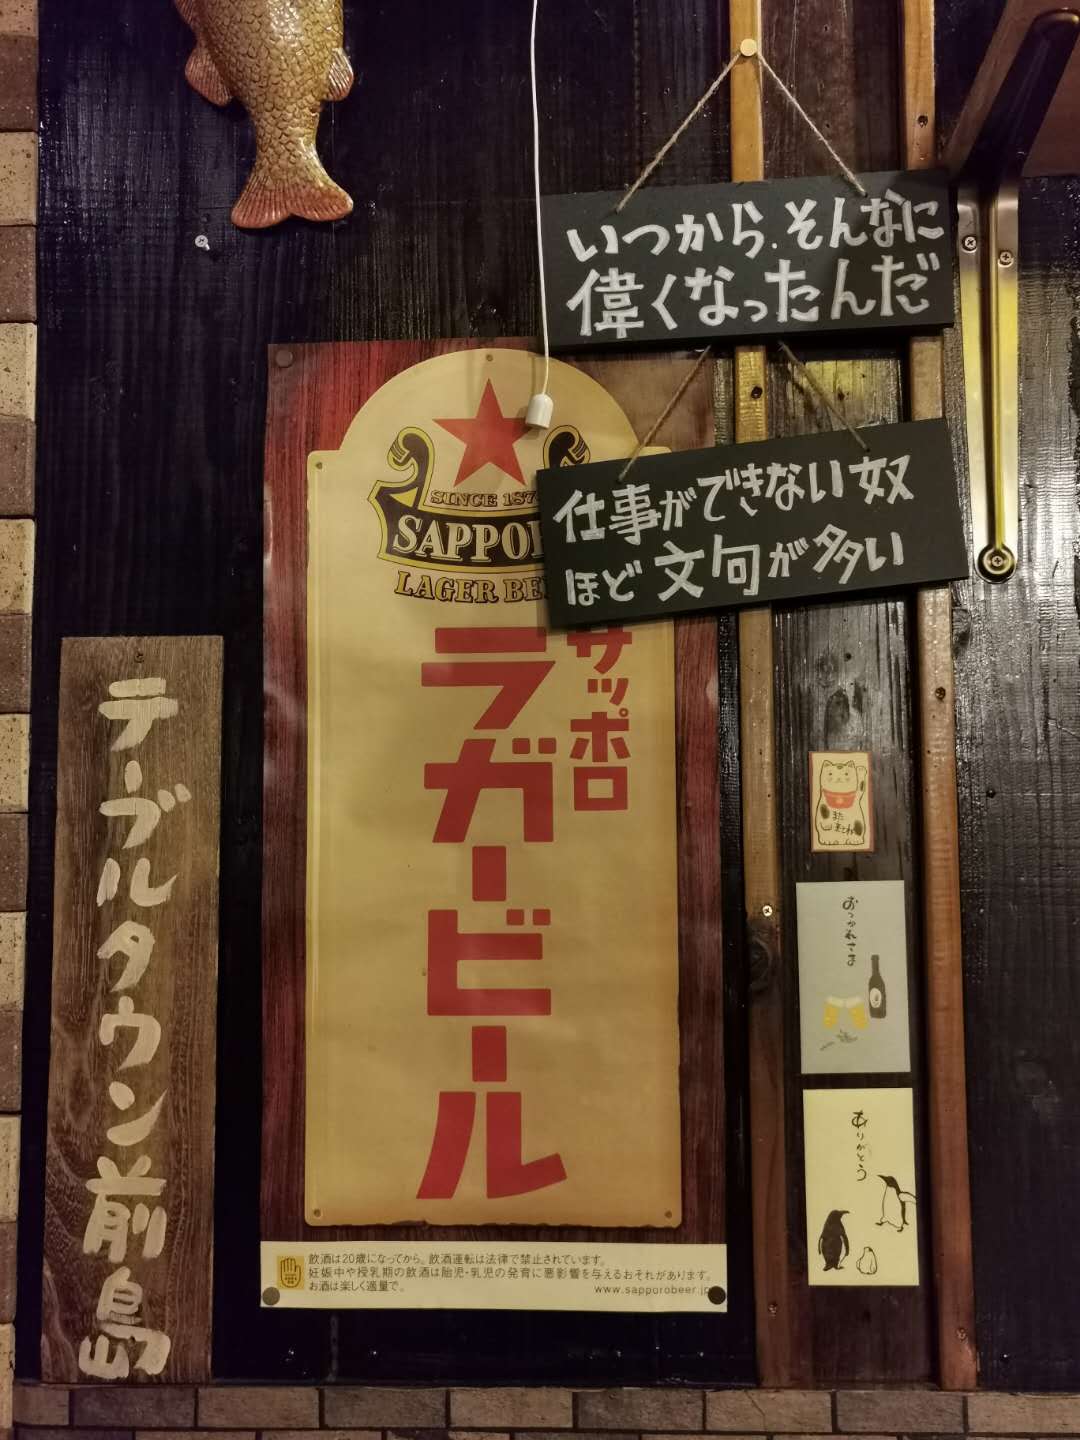 いつから、そんなに
偉くなったんだ
仕事ができない奴
ほど文句が多い
SINCE 187
SAPPO
LAGER BE
サッポロ
ラガービール
飲酒は20歳になってから。飲酒運転は法律で禁止されています。
妊娠中や授乳期の飲酒は胎児・乳児の発育に悪影響を与えるおそれがあります。
お酒は楽しく適量で。
www.sapporobeer.jp
テーブルタウン前島
また
おつかれさま
ありがとう